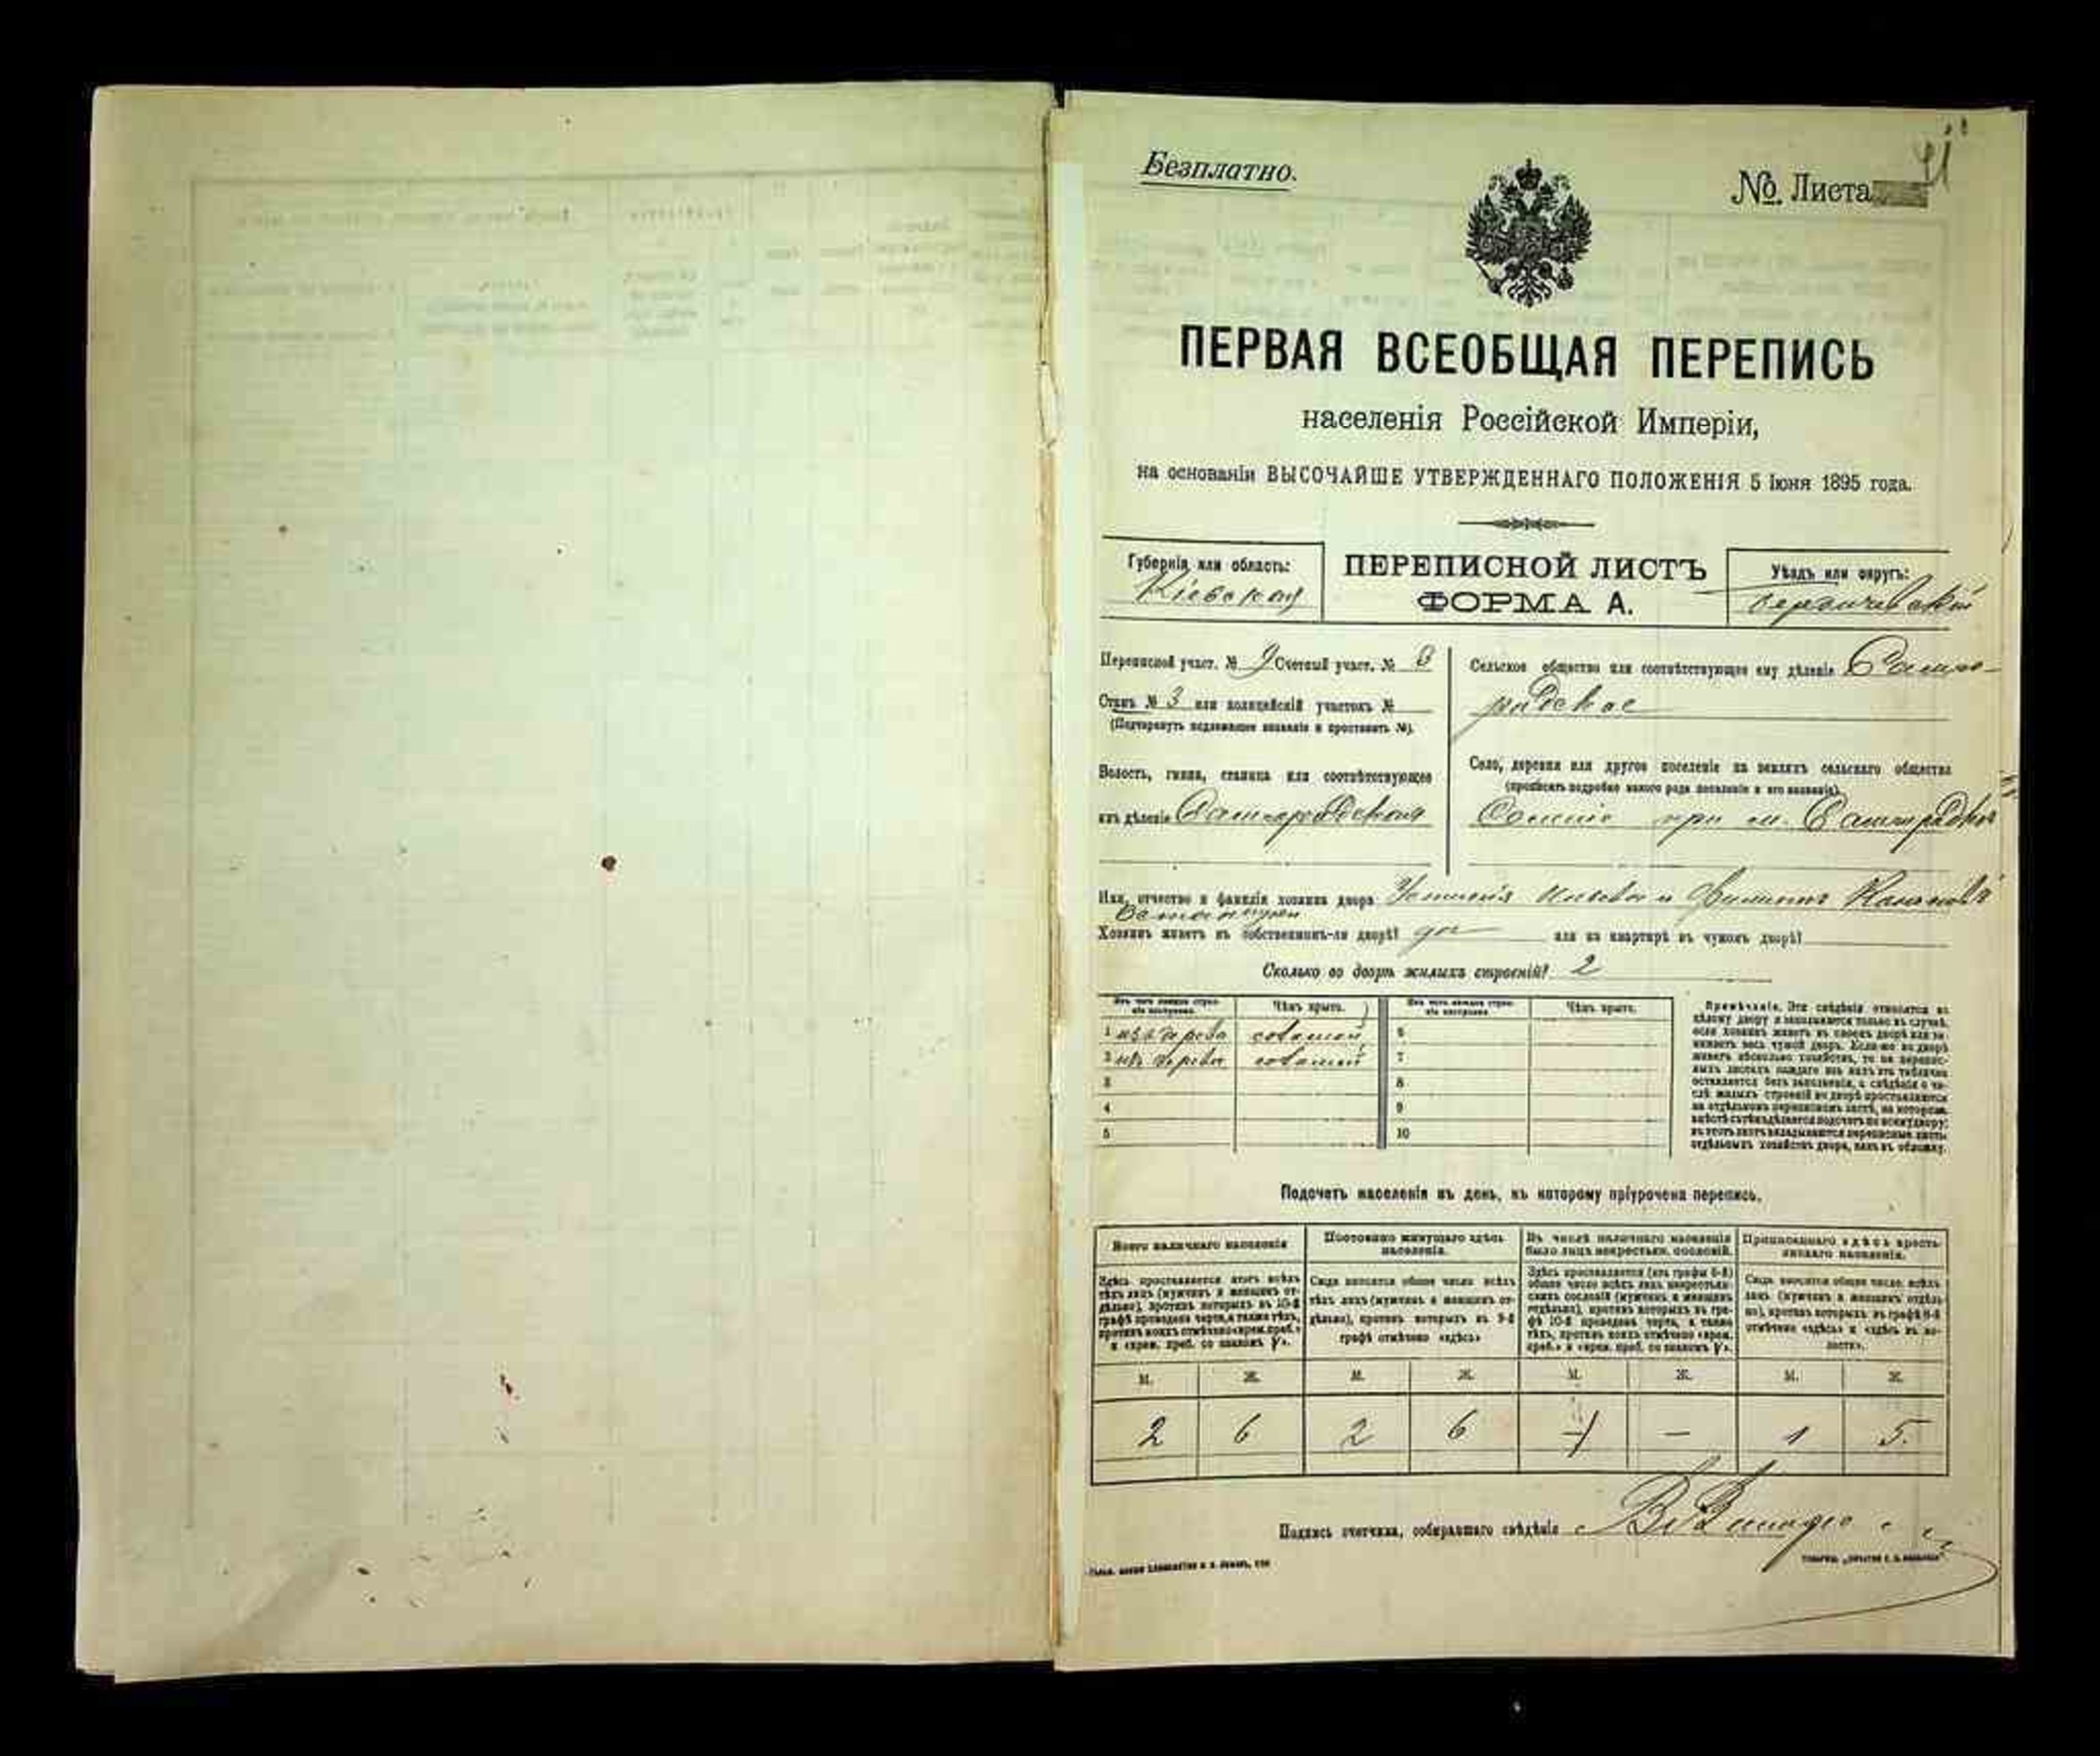 Безплатно.
№ Листа
ПЕРВАЯ ВСЕОБЩАЯ ПЕРЕПИСЬ
населенія Россійской Имперіи,
на основаніи ВЫСОЧАЙШЕ УТВЕРЖДЕННАГО ПОЛОЖЕНІЯ 5 Іюня 1895 года.
Губернія или область:
Кіевская
ПЕРЕПИСНОЙ ЛИСТЪ
ФОРМА А.
Уѣздъ или округъ:
Бердичевскій
Переписной участ. № 9 Счетный участ. № 8
Станъ № 3 или полицейскій участокъ №
(Подчеркнуть подлежащее названіе и проставить №).
Волость, гмина, станица или соотвѣтствующее
имъ дѣленіе
Сельское общество или соотвѣтствующее ему дѣленіе
Село, деревня или другое поселеніе на земляхъ сельскаго общества
(прописать подробно какого рода поселеніе и его названіе).
при м.
Имя, отчество и фамилія хозяина двора
Хозяинъ живетъ въ собственномъ-ли дворѣ? да или на квартирѣ въ чужомъ дворѣ?
Сколько во дворѣ жилыхъ строеній? 2
Изъ чего каждое строеніе построено.
Чѣмъ крыто.
Изъ чего каждое строеніе построено
Чѣмъ крыто.
1 изъ дерева соломой 6
2 изъ дерева соломой 7
3 8
4 9
5 10
Примѣчаніе. Эти свѣдѣнія относятся ко
цѣлому двору и заполняются только въ случаѣ,
если хозяинъ живетъ въ своемъ дворѣ или за-
нимаетъ весь чужой дворъ. Если-же во дворѣ
живетъ нѣсколько хозяйствъ, то на перепис-
ныхъ листахъ каждаго изъ нихъ эта табличка
оставляется безъ заполненія, а свѣдѣнія о чи-
слѣ жилыхъ строеній во дворѣ проставляются
на отдѣльномъ переписномъ листѣ, на которомъ
вмѣстѣ съ тѣмъ дѣлается подсчетъ по всему двору;
въ этотъ листъ вкладываются переписные листы
отдѣльныхъ хозяйствъ двора, какъ въ обложку.
Подсчетъ населенія въ день, къ которому пріурочена перепись.
Всего наличнаго населенія
Постоянно живущаго здѣсь
населенія.
Въ числѣ наличнаго населенія
было лицъ некрестьян. сословій.
Приписаннаго здѣсь кресть-
янскаго населенія.
Здѣсь проставляется итогъ всѣхъ
тѣхъ лицъ (мужчинъ и женщинъ от-
дѣльно), противъ которыхъ въ 10-й
графѣ проведена черта, а также тѣхъ,
противъ коихъ отмѣчено «врем. преб.»
и «врем. преб. со знакомъ V».
Сюда вносится общее число всѣхъ
тѣхъ лицъ (мужчинъ и женщинъ от-
дѣльно), противъ которыхъ въ 9-й
графѣ отмѣчено «здѣсь»
Здѣсь проставляется (изъ графы 6-й)
общее число всѣхъ лицъ некрестьян-
скихъ сословій (мужчинъ и женщинъ
отдѣльно), противъ которыхъ въ гра-
фѣ 10-й проведена черта, а также
тѣхъ, противъ коихъ отмѣчено «врем.
преб.» и «врем. преб. со знакомъ V».
Сюда вносится общее число всѣхъ
лицъ (мужчинъ и женщинъ отдѣль-
но), противъ которыхъ въ графѣ 8-й
отмѣчено «здѣсь» и «здѣсь въ во-
лости».
М. Ж. М. Ж. М. Ж. М. Ж.
2 6 2 6 - - 1 5.
Подпись счетчика, собиравшаго свѣдѣнія